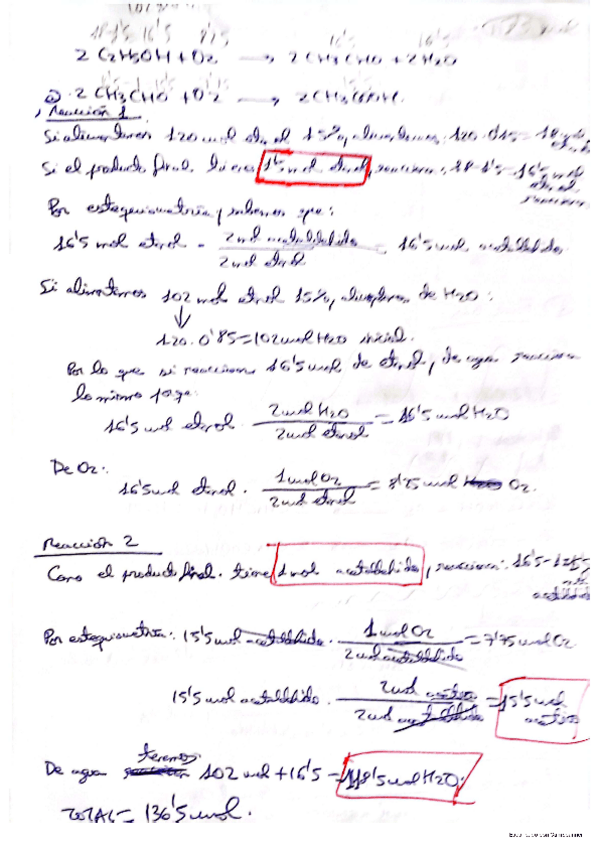 18-1'5 16'5 8'25 16'5 16'5
2 C2H5OH + O2 → 2 CH3CHO + 2H2O
② 2 CH3CHO + O2 → 2CH3COOH.
Reacción 1
Si alimentamos 120 mol etanol 15%, alimentamos: 120·0'15 = 18 mol
Si el producto final tiene 1'5 mol etanol, reaccionan: 18-1'5 = 16'5 mol etanol reaccionan
Por estequiometría, sabemos que:
16'5 mol etanol · 2mol acetaldehido / 2mol etanol = 16'5 mol acetaldehido
Si alimentamos 102 mol etanol 15%, de H2O:
↓
120·0'85 = 102 mol H2O inicial.
Por lo que si reaccionan 16'5 mol de etanol, de agua reacciona
lo mismo
16'5 mol etanol · 2mol H2O / 2mol etanol = 16'5 mol H2O
De O2:
16'5 mol etanol · 1 mol O2 / 2 mol etanol = 8'25 mol O2.
Reacción 2
Como el producto final tiene 1 mol acetaldehido, reaccionan: 16'5-1
Por estequiometría: 15'5 mol acetaldehido · 1 mol O2 / 2 mol acetaldehido = 7'75 mol O2
15'5 mol acetaldehido · 2mol acético / 2mol acetaldehido = 15'5 mol acético
De agua tenemos 102 mol + 16'5 = 118'5 mol H2O.
TOTAL = 136'5 mol.